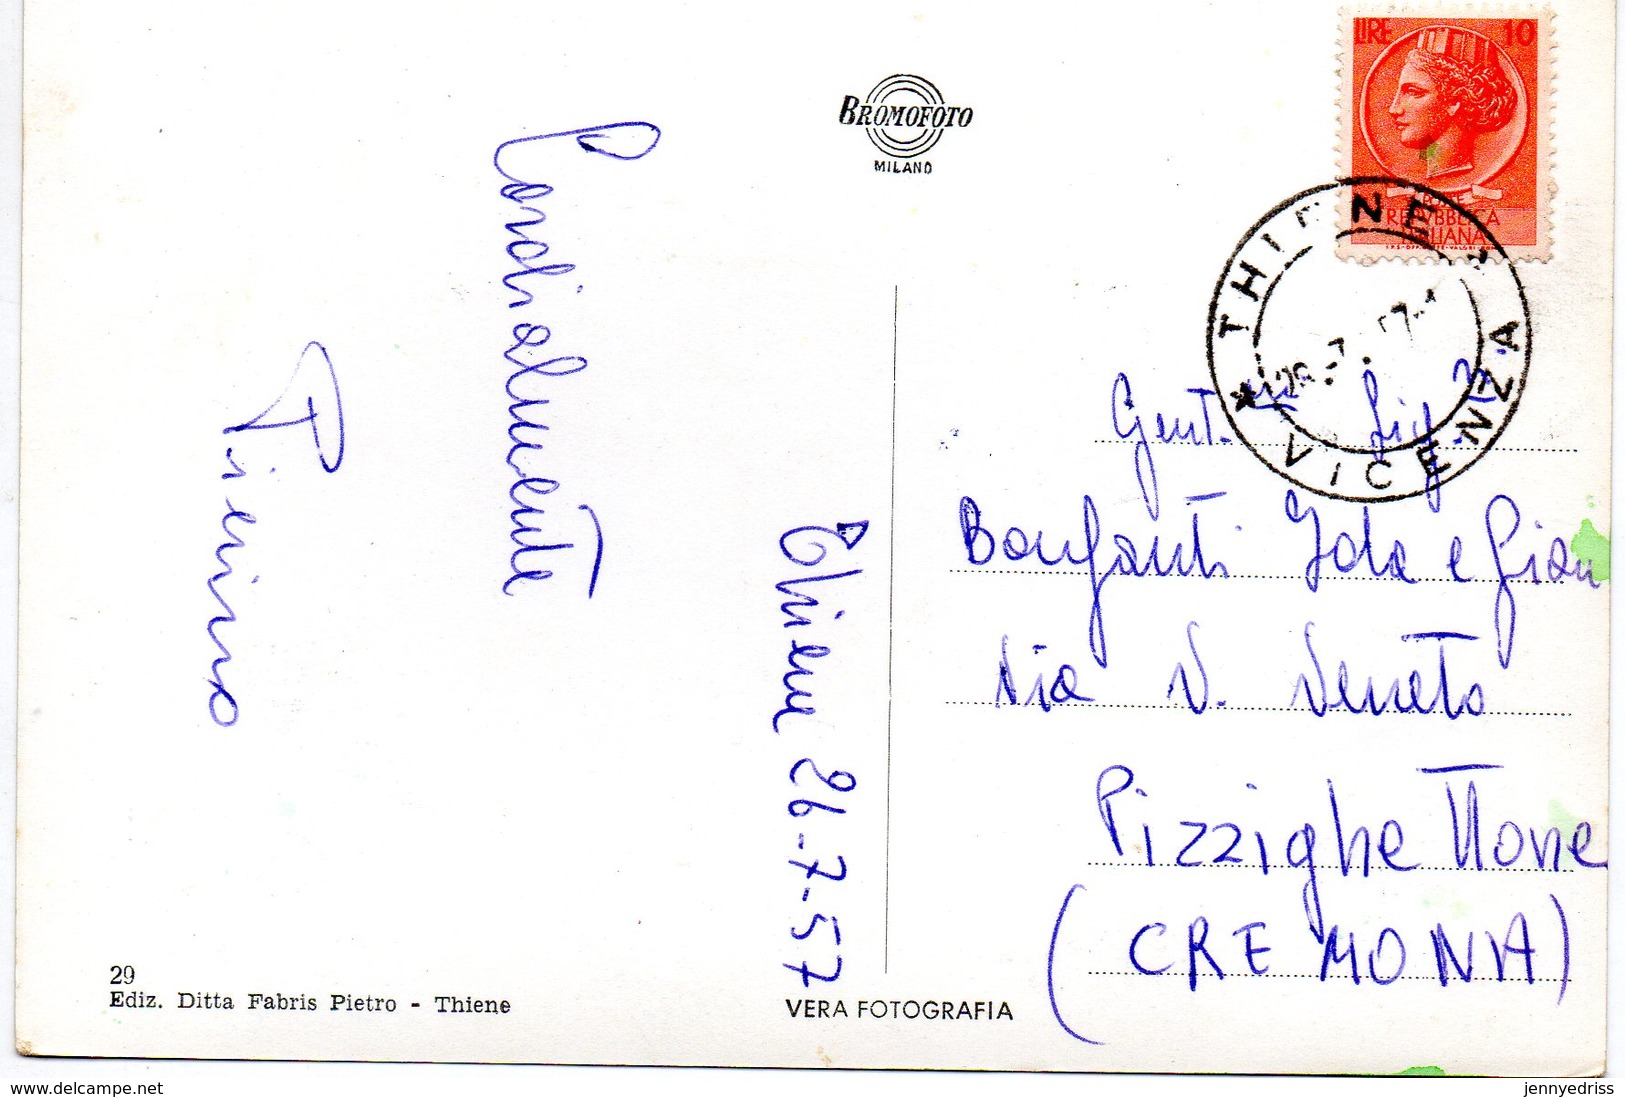 LIRE 10
POSTE
REPVBBLICA
ITALIANA
BROMOFOTO
MILANO
THIENE
VICENZA
Thiene 26-7-57
Cordialmente
Pierino
Gent. Sig.
Bonfanti Ida e Gian
Via V. Veneto
Pizzighettone
(CREMONA)
29
Ediz. Ditta Fabris Pietro - Thiene
VERA FOTOGRAFIA
www.delcampe.net
jennyedriss